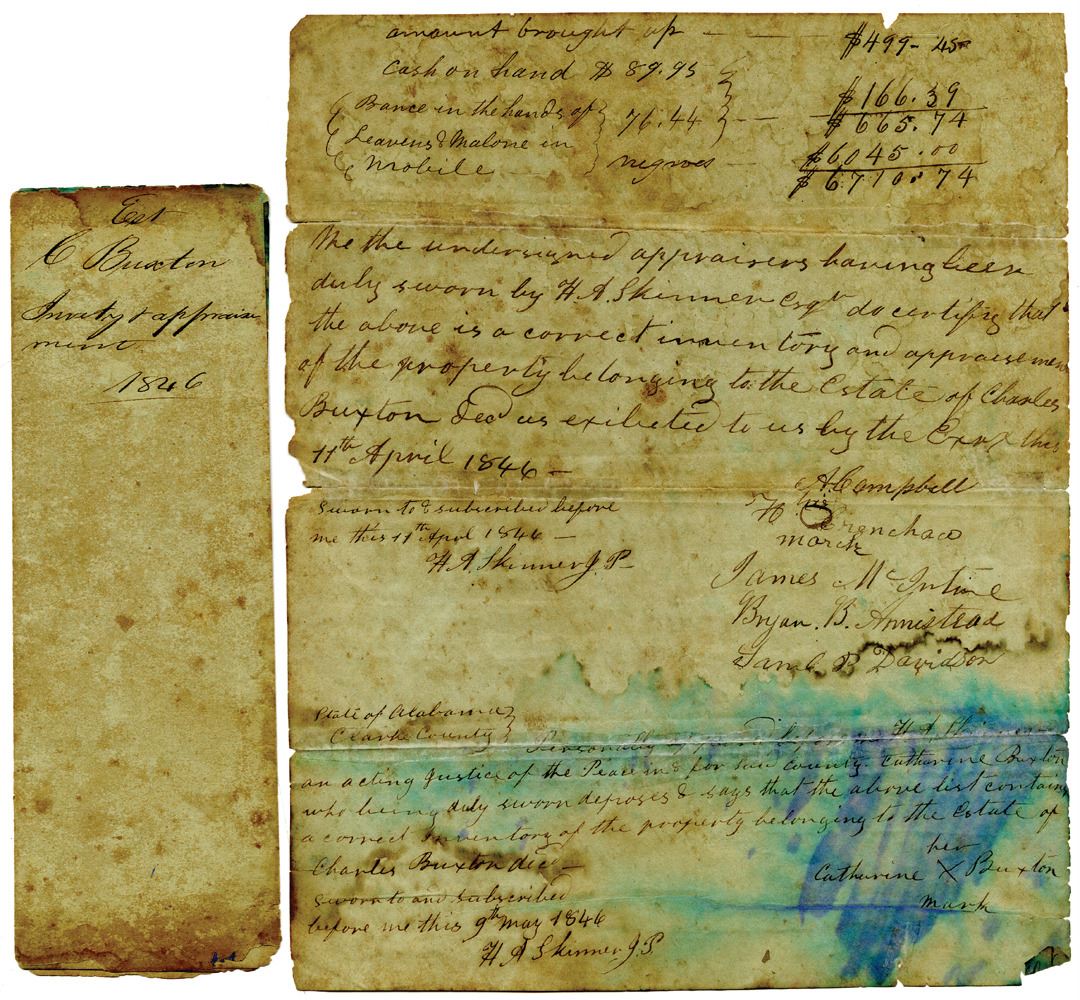 Est
C Buxton
Invety & appraise
ment
1846
amount brought up — $499-45
Cash on hand $ 89.95
$166.39
Bance in the hands of 76.44 — $665.74
Leavens & Malone in
Mobile negroes — $6045.00
$6710.74
We the undersigned appraisers having been
duly sworn by H A Skinner Esqr do certify that
the above is a correct inventory and appraisemen
of the property belonging to the Estate of Charles
Buxton Decd as exibeted to us by the Exrx this
11th April 1846 —
A. Campbell
sworn to & subscribed before
H his
me this 11th Aprl 1846 —
mark
H A Skinner J.P.
James McIntire
Bryan. B. Armistead
Saml B Davidson
State of Alabama
Clarke County Personally appeared before me H A Skinner
an acting Justice of the Peace in & for said County. Catharine Buxton
who being duly sworn deposes & says that the above list contains
a correct Inventory of the property belonging to the Estate of
Charles Buxton decd —
her
Catharine X Buxton
mark
sworn to and subscribed
before me this 9th May 1846
H A Skinner J.P.